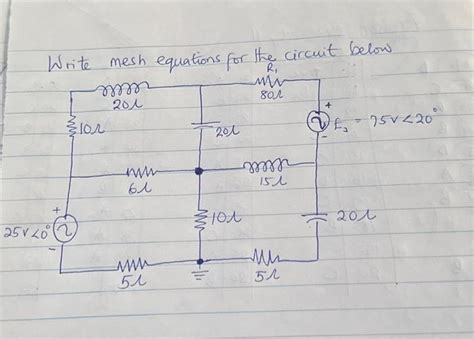 Write mesh equations for the circuit below
R₁
20Ω
80Ω
+
10Ω
20Ω
E₂ = 75V<20°
-
6Ω
15Ω
+
25V<0°
10Ω
20Ω
-
5Ω
5Ω